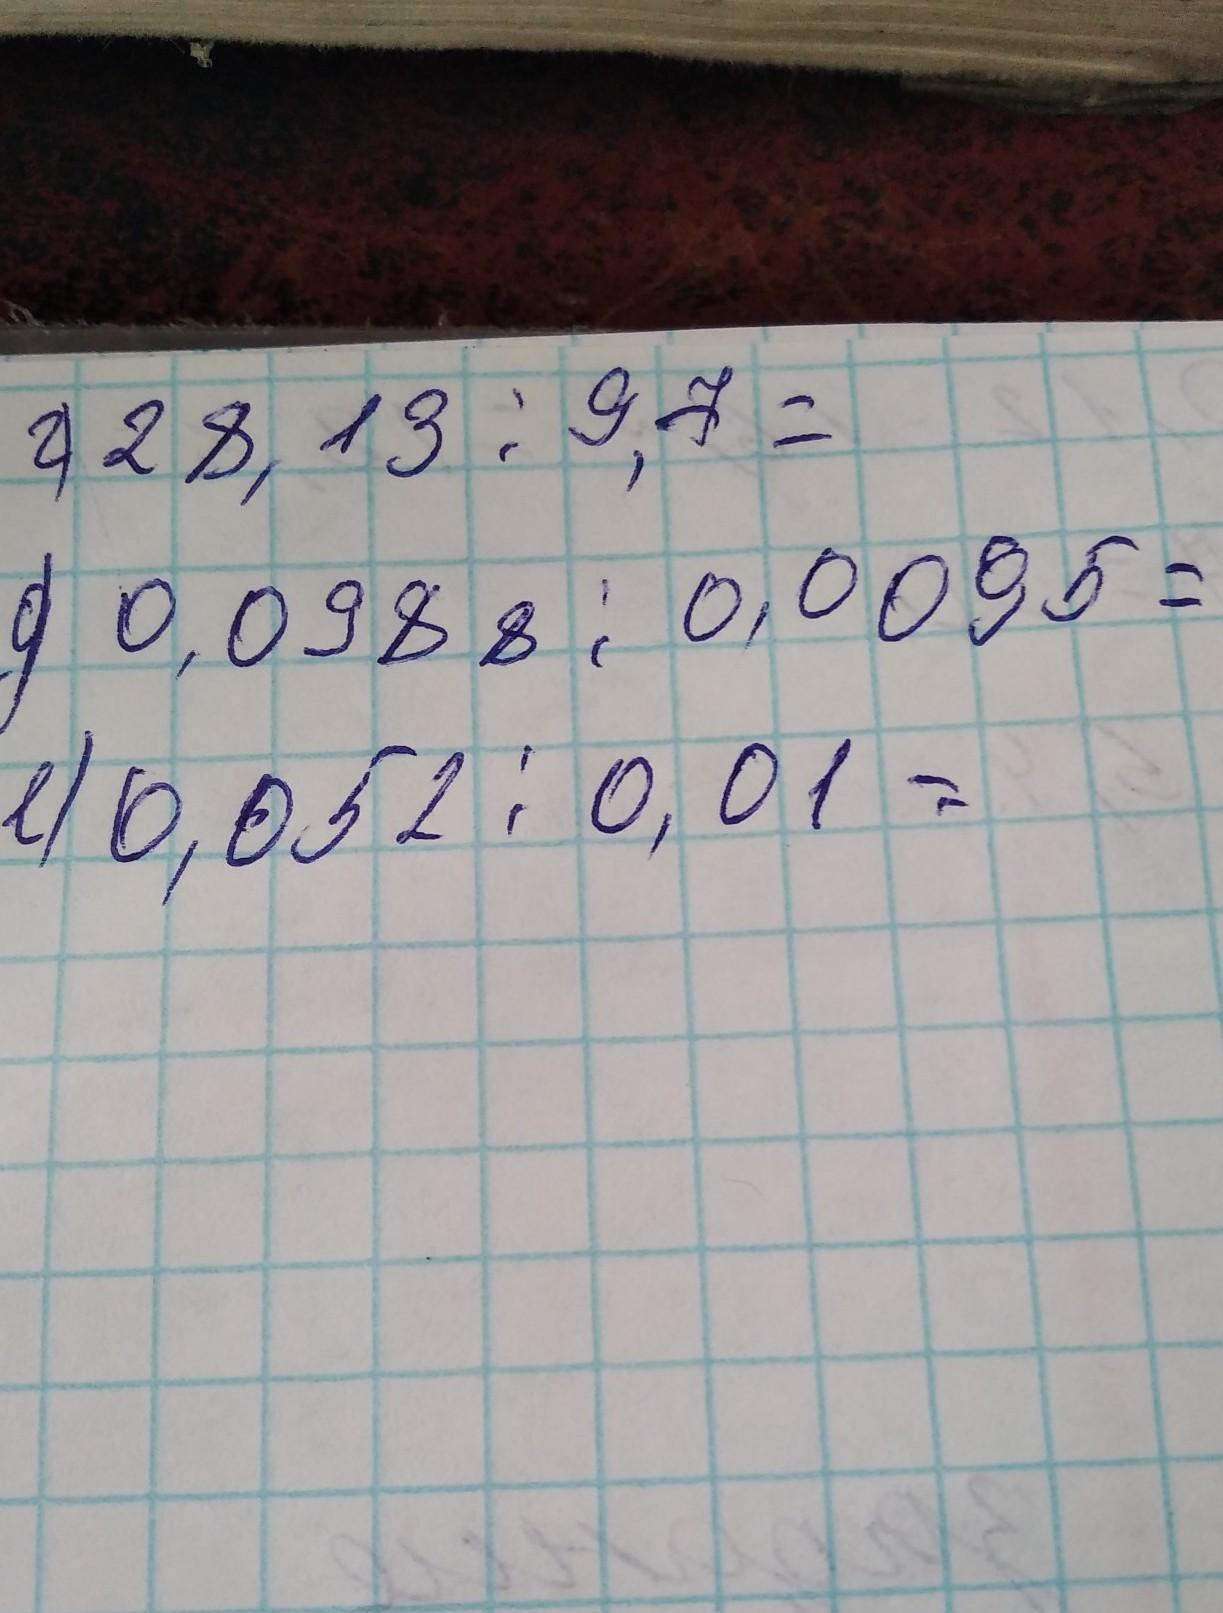 г) 28,13 : 9,7 =
д) 0,0988 : 0,0095 =
е) 0,052 : 0,01 =